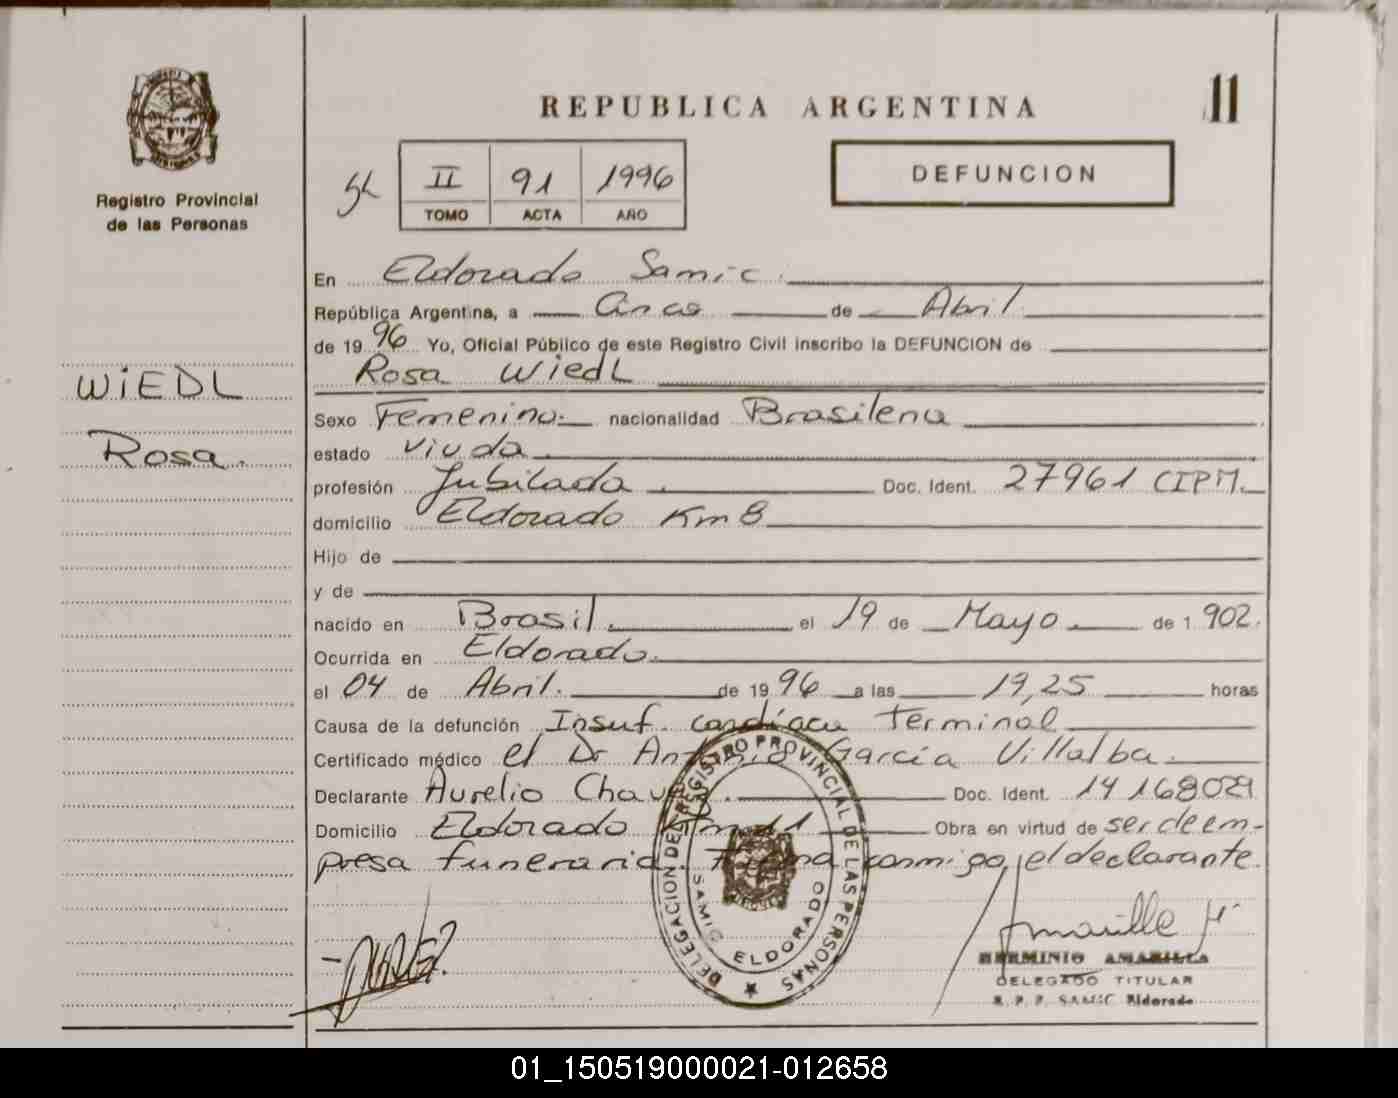 11
REPUBLICA ARGENTINA
Registro Provincial
de las Personas
II 91 1996
TOMO ACTA AÑO
DEFUNCION
En Eldorado Samic.
República Argentina, a Cinco de Abril.
de 19 96 Yo, Oficial Público de este Registro Civil inscribo la DEFUNCION de
Rosa Wiedl
WiEDL
Rosa.
Sexo Femenino. nacionalidad Brasilena
estado Viuda.
profesión Jubilada. Doc. Ident. 27961 CIPM.
domicilio Eldorado Km 8
Hijo de
y de
nacido en Brasil. el 19 de Mayo. de 1 902.
Ocurrida en Eldorado.
el 04 de Abril. de 19 96 a las 19,25 horas
Causa de la defunción Insuf. cardíaca Terminal
Certificado médico el Dr Antonio García Villalba.
Declarante Aurelio Chavez. Doc. Ident. 14 168029
Domicilio Eldorado Km 11 Obra en virtud de ser de em-
presa funeraria. Firma conmigo, el declarante.
DELEGACION DEL REGISTRO PROVINCIAL DE LAS PERSONAS
SAMIC ELDORADO
HERMINIO AMARILLA
DELEGADO TITULAR
R. P. P. SAMIC Eldorado
01_150519000021-012658